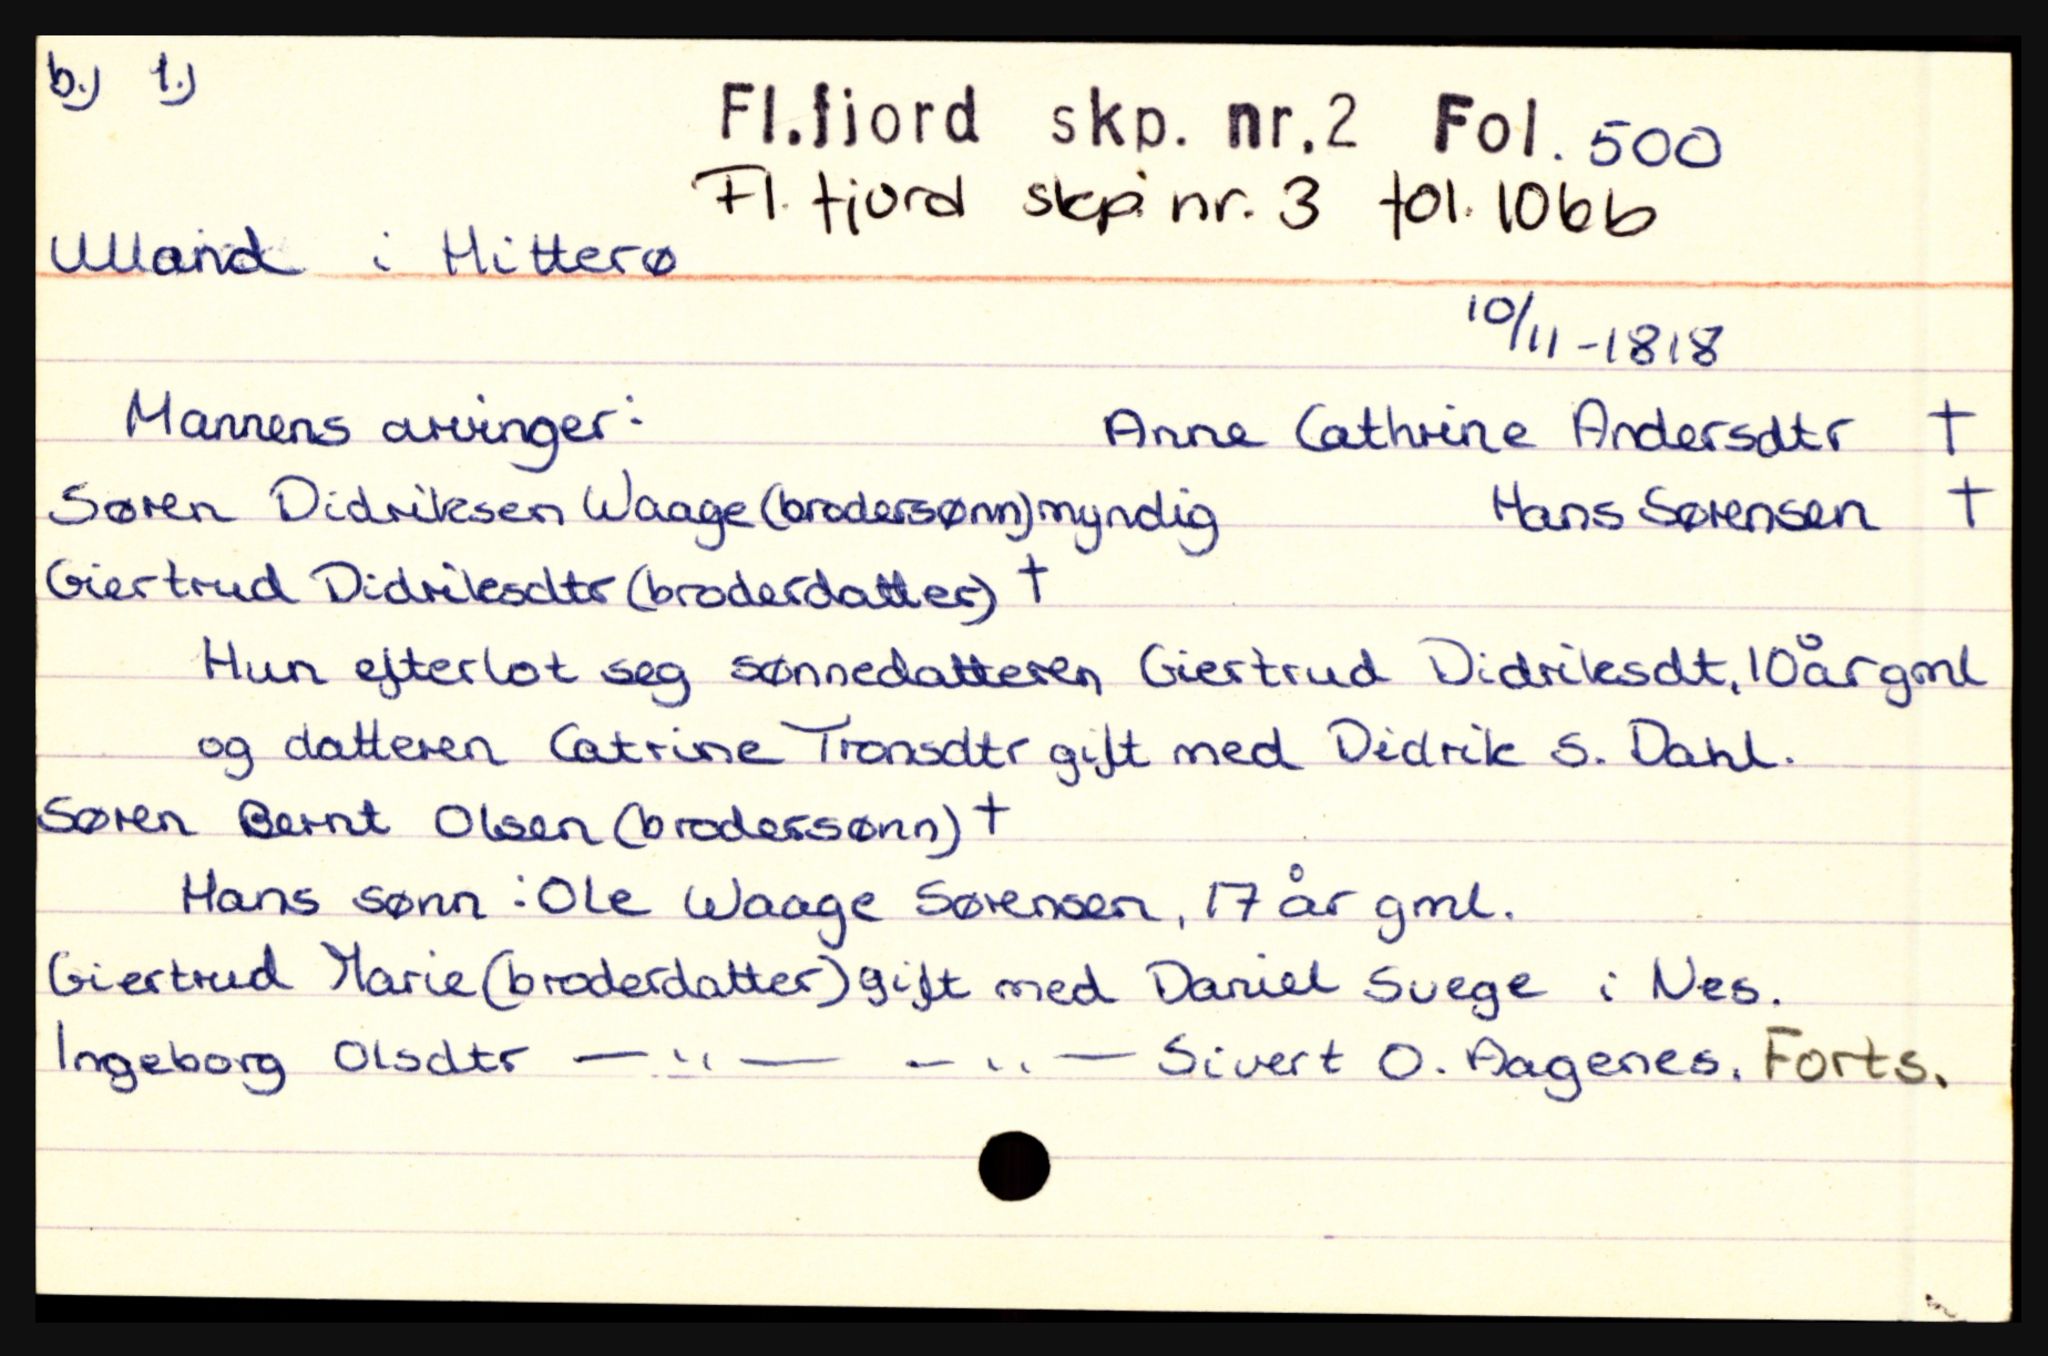 b.) 1.)
Fl.fjord skp. nr.2 Fol. 500
Fl. fjord skp. nr. 3 fol. 106b
Ulland i Hitterø
10/11-1818
Mannens arvinger: Anne Cathrine Andersdtr †
Søren Didriksen Waage (brodersønn) myndig Hans Sørensen †
Giertrud Didriksdtr (broderdatter) †
Hun efterlot seg sønnedatteren Giertrud Didriksdt, 10 år gml
og datteren Catrine Tronsdtr gift med Didrik S. Dahl.
Søren Bernt Olsen (brodersønn) †
Hans sønn : Ole Waage Sørensen, 17 år gml.
Giertrud Marie (broderdatter) gift med Daniel Svege i Nes.
Ingeborg Olsdtr — " — — " — Sivert O. Aagenes. Forts.